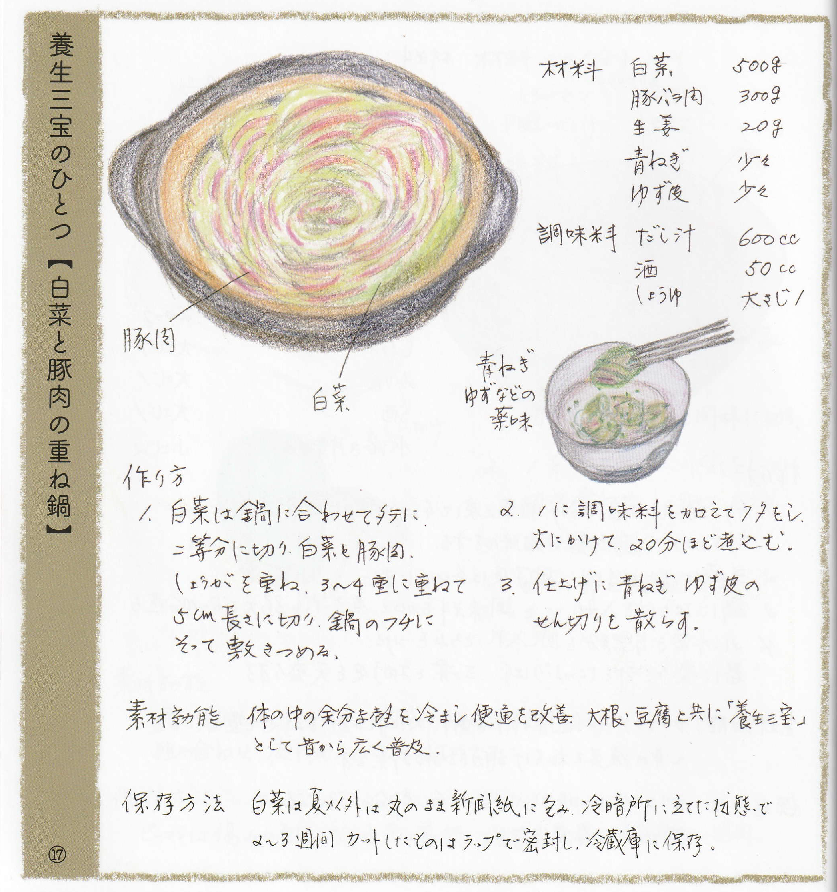 養生三宝のひとつ【白菜と豚肉の重ね鍋】
材料 白菜 500g
豚バラ肉 300g
生姜 20g
青ねぎ 少々
ゆず皮 少々
調味料 だし汁 600cc
酒 50cc
しょうゆ 大さじ1
豚肉
白菜
青ねぎ
ゆずなどの
薬味
作り方
1. 白菜は鍋に合わせてタテに
二等分に切り、白菜と豚肉、
しょうがを重ね、3〜4重に重ねて
5cm長さに切り、鍋のフチに
そって敷きつめる。
2. 1に調味料を加えてフタをし、
火にかけて、20分ほど煮込む。
3. 仕上げに青ねぎ、ゆず皮の
せん切りを散らす。
素材効能 体の中の余分な熱を冷まし便通を改善、大根・豆腐と共に「養生三宝」
として昔から広く普及。
保存方法 白菜は夏以外は丸のまま新聞紙に包み、冷暗所に立てた状態で
2〜3週間 カットしたものはラップで密封し、冷蔵庫に保存。
⑰